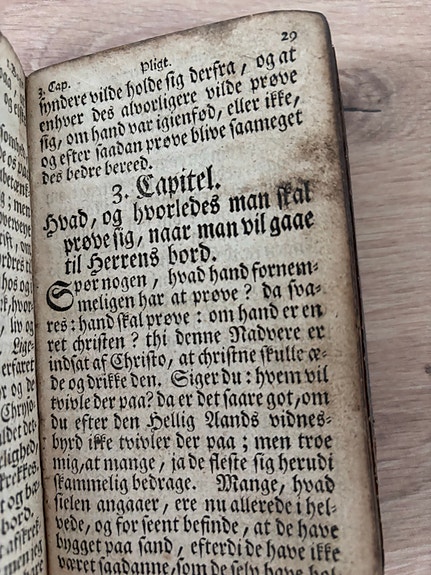 3. Cap.
Pligt.
29
syndere vilde holde sig derfra, og at
enhver des alvorligere vilde prøve
sig, om hand var igienfød, eller ikke,
og efter saadan prøve blive saameget
des bedre bereed.
3. Capitel.
Hvad, og hvorledes man skal
prøve sig, naar man vil gaae
til Herrens bord.
Spør nogen, hvad hand fornem-
meligen har at prøve? da sva-
res: hand skal prøve: om hand er en
ret christen? thi denne Nadvere er
indsat af Christo, at christne skulle æ-
de og drikke den. Siger du: hvem vil
tvivle der paa? da er det saare got, om
du efter den Hellig Aands vidnes-
byrd ikke tvivler der paa; men troe
mig, at mange, ja de fleste sig herudi
skammelig bedrage. Mange, hvad
sielen angaaer, ere nu allerede i hel-
vede, og for seent befinde, at de have
bygget paa sand, efterdi de have ikke
været saadanne, som de selv have